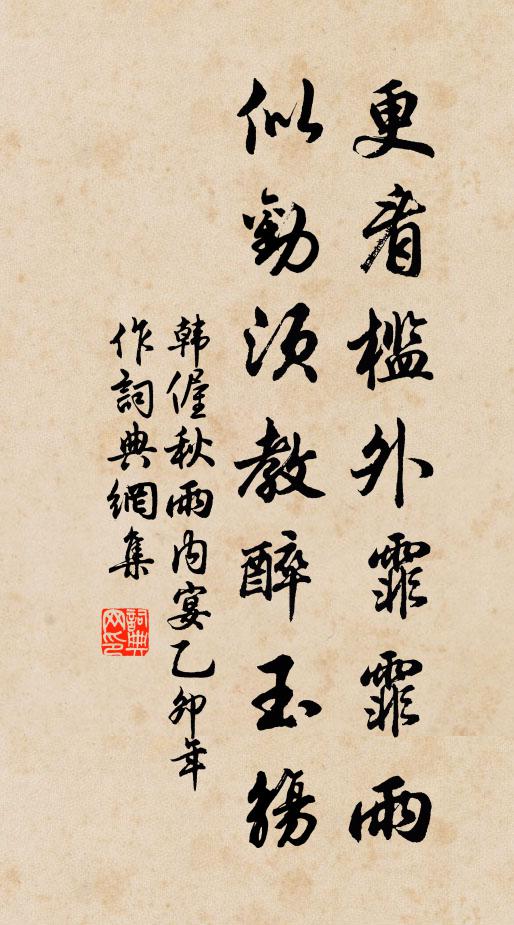 更看檻外霏霏雨
似勸須教醉玉觴
韩偓秋雨内宴乙卯年
作詞典網集
詞典网印